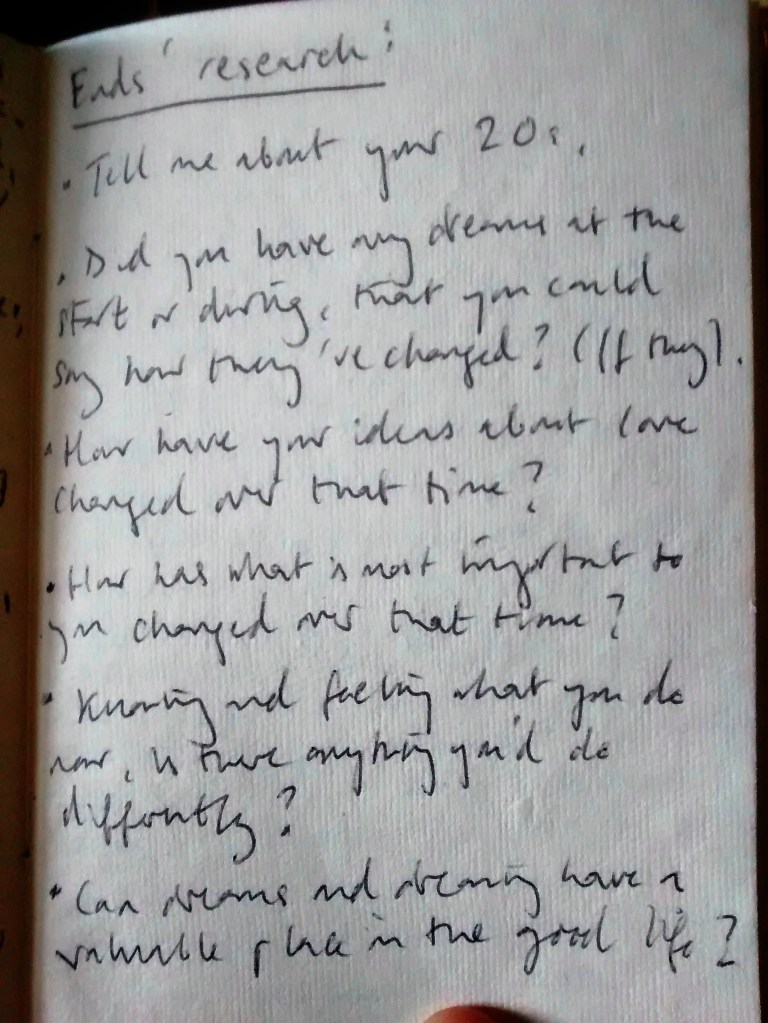 Ends' research:
• Tell me about your 20s.
• Did you have any dreams at the
start or during, that you could
say how they've changed? (If they).
• How have your ideas about love
changed over that time?
• How has what is most important to
you changed over that time?
• Knowing and feeling what you do
now, is there anything you'd do
differently?
• Can dreams and dreaming have a
valuable place in the good life?